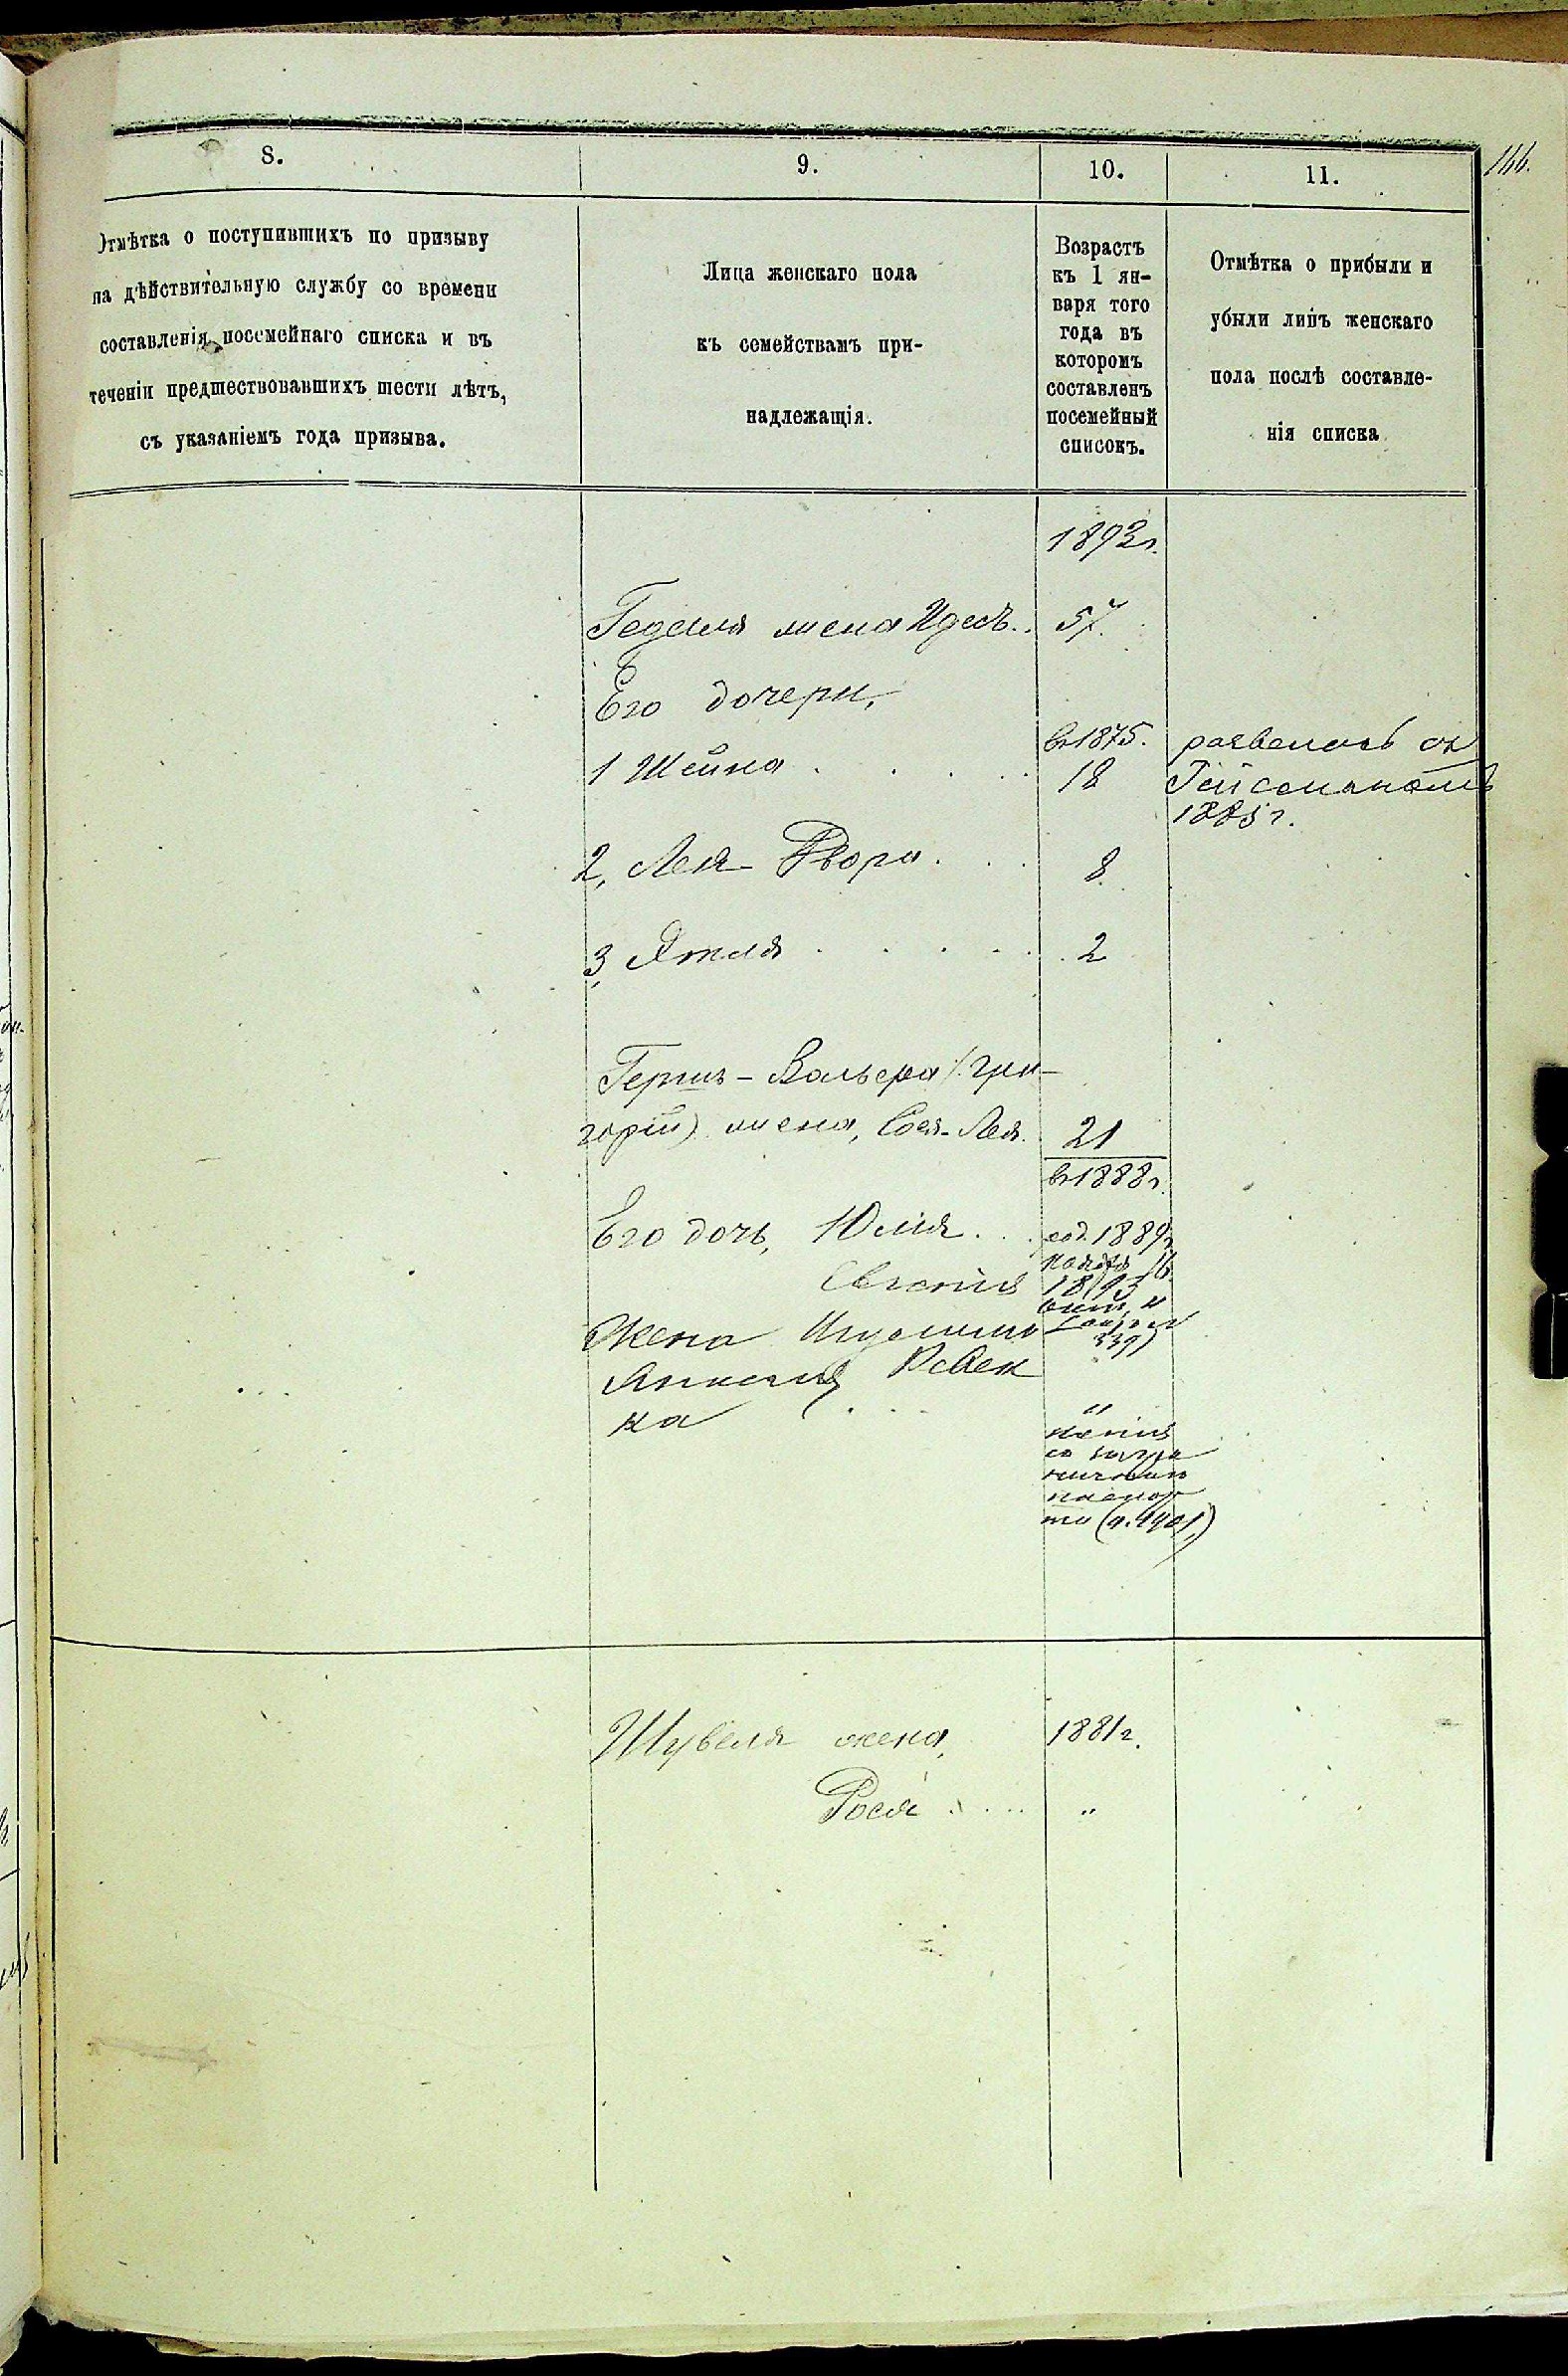 144.
8. 9. 10. 11.
Отмѣтка о поступившихъ по призыву
на дѣйствительную службу со времени
составленія посемейнаго списка и въ
теченіи предшествовавшихъ шести лѣтъ,
съ указаніемъ года призыва.
Лица женскаго пола
къ семействамъ при-
надлежащія.
Возрастъ
къ 1 ян-
варя того
года въ
которомъ
составленъ
посемейный
списокъ.
Отмѣтка о прибыли и
убыли лицъ женскаго
пола послѣ составле-
нія списка
1892г.
Геделя жена Идесъ.. 57.
Его дочери,
въ 1875. развелась съ
1 Шейна . . . . . 18
1885 г.
2, Лея-Двора . . . 8.
3, Ятля . . . . . 2
Гершъ-Вольфа (Гри-
горій) жена, Сося-Лея. 21
въ 1888г.
Его дочь, Юлія . . . род. 1889г.
ноября 16.
Евгенія 1893
Жена
339)
Ревек
ка . . . "
копія
съ загра
ничнаго
паспор
та (ч. 1901)
Шувеля жена, 1881г.
Рося . . . . "